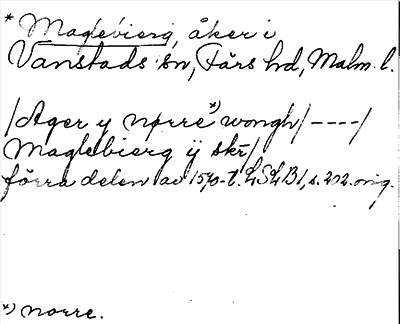 * Maglebierg, åker i
Vanstads sn, Färs hd, Malm. l.
/Ager y nørre *) wongh/ ----/
Maglebierg ÿ skr/
förra delen av 1570-t. LSLB1, s. 202. orig.
*) norre.